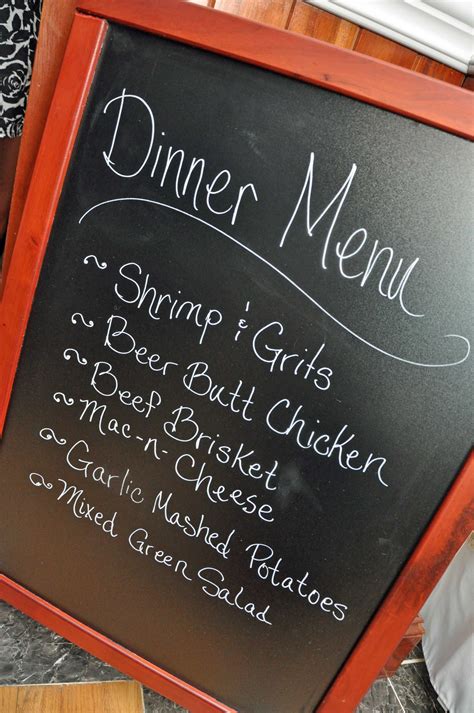 Dinner Menu
~ Shrimp & Grits
~ Beer Butt Chicken
~ Beef Brisket
~ Mac-n-Cheese
~ Garlic Mashed Potatoes
~ Mixed Green Salad